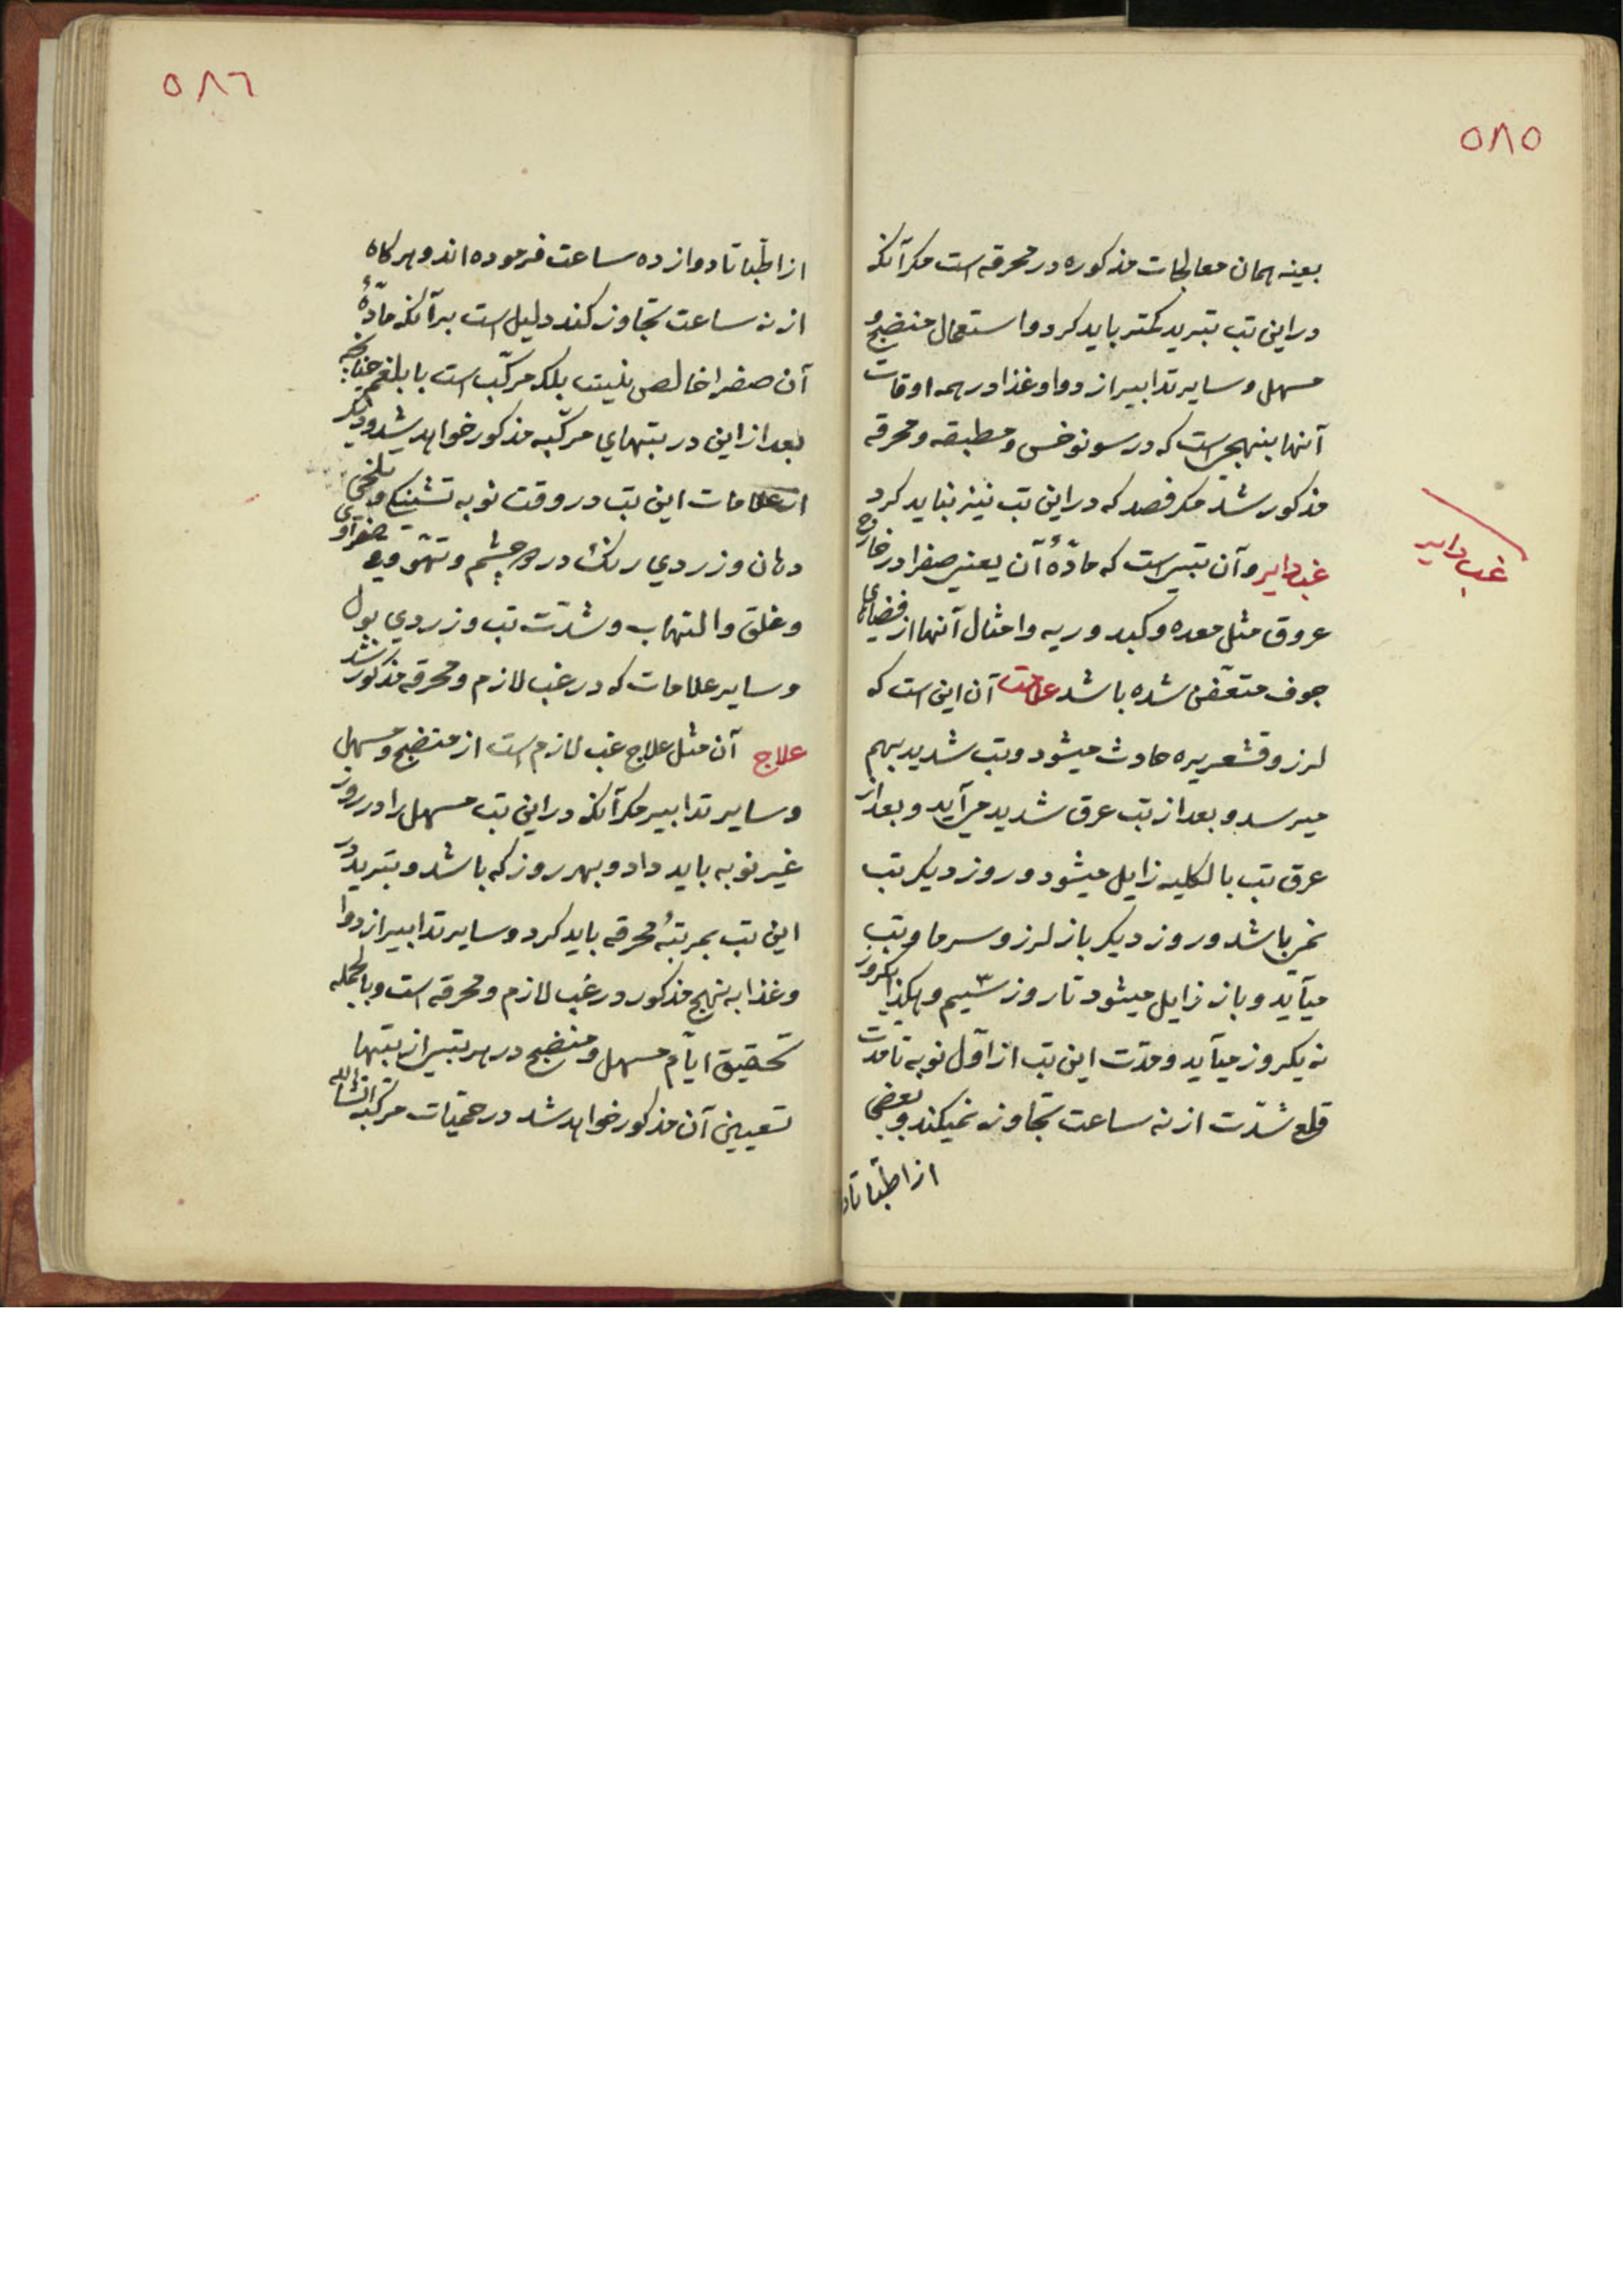 ۵۸۵
بعینه همان معالجات مذکوره در محرقه است مکر آنکه
در این تب تبرید کمتر باید کرد و استعمال منضج و
مسهل و سایر تدابیر از دوا و غذا در همه اوقات
آنها بنهجی است که در سونوخس و مطبقه و محرقه
مذکور شد مکر فصد که در این تب نیز نباید کرد
غب دایر و آن تبی است که مادّهٔ آن یعنی صفرا در خارج
غب دایر
عروق مثل معده و کبد و ریه و امثال آنها از فضاهای
جوف متعفّن شده باشد علامت آن این است که
لرز و قشعریره حادث میشود و تب شدید بهم
میرسد و بعد از تب عرق شدید می آید و بعد از
عرق تب بالکلیه زایل میشود و روز دیکر تب
نمی باشد و روز دیکر باز لرز و سرما و تب
میآید و باز زایل میشود تا روز سیم و هکذا یکروز
نه یکروز میآید و مدّت این تب از اوّل نوبه تا مدّت
قلع شدّت از نه ساعت تجاوز نمیکند و بعضی
از اطبّا تا دو
۵۸۶
از اطبّا تا دوازده ساعت فرموده اند و هر کاه
از نه ساعت تجاوز کند دلیل است بر آنکه مادّهٔ
آن صفرا خالص نیست بلکه مرکّب است با بلغم چنانچه
بعد از این در تبهای مرکّبه مذکور خواهد شد و دیکر
از علامات این تب در وقت نوبه تشنکی و تلخی
دهان و زردی رنک در و چشم و تهوّع و قی صفراوی
و غلق و التهاب و شدّت تب و زردی بول
و سایر علامات که در غب لازم و محرقه مذکور شد
علاج آن مثل علاج غب لازم است از منضج و مسهل
و سایر تدابیر مکر آنکه در این تب مسهل را در روز
غیر نوبه باید داد و بهر روز که باشد و تبرید در
این تب بمرتبهٔ محرقه باید کرد و سایر تدابیر از دوا
و غذا به نهج مذکور در غب لازم و محرقه است و بالجمله
تحقیق ایّام مسهل و منضج در هر تبی از تبها
تعیین آن مذکور خواهد شد در حمیّات مرکّبه انشاالله